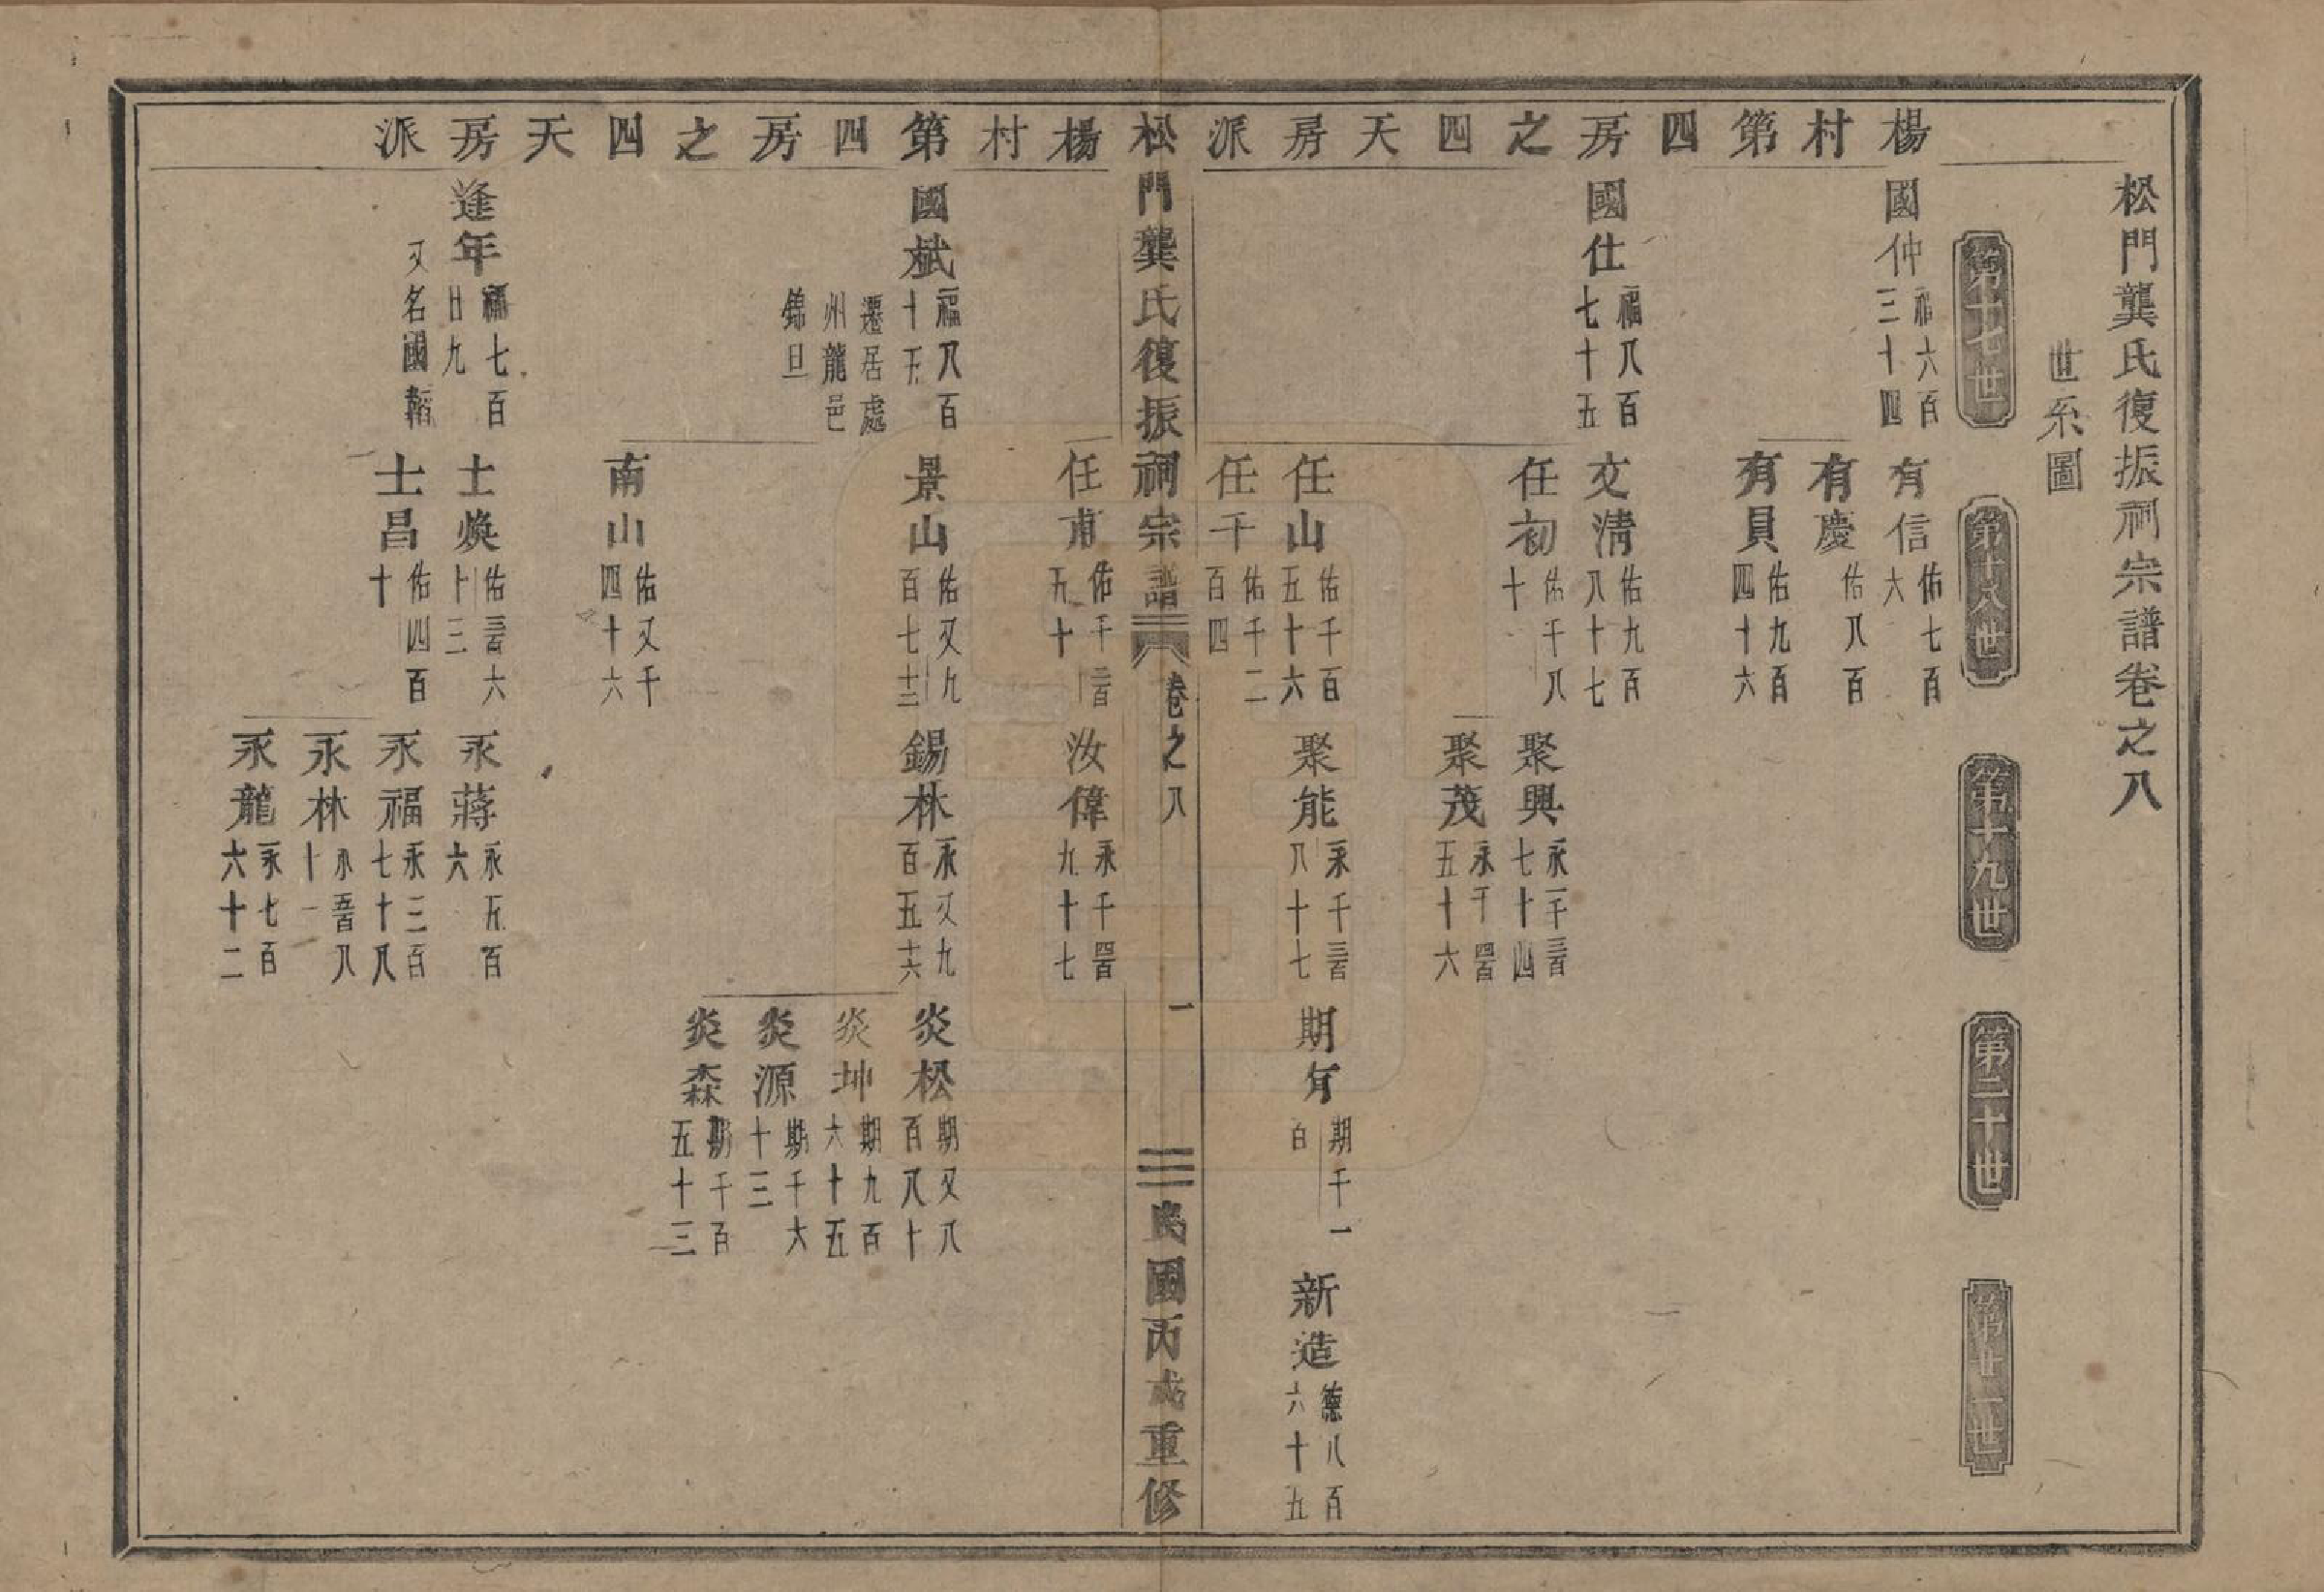 松門龔氏復振祠宗譜卷之八
世系圖
第十七世
第十八世
第十九世
第二十世
第廿一世
楊村第四房之四天房派
國仲 福六百三十四
有信 佑七百六
有慶 佑八百
有員 佑九百四十六
國仕 福八百七十五
文清 佑九百八十七
任初 佑千八十
聚興 永千三百七十四
聚茂 永千四百五十六
任山 佑千百五十六
聚能 永千三百八十七
期年 期千一百
新造 德八百六十五
任千 佑千二百四
松門龔氏復振祠宗譜 卷之八 一 民國丙戌重修
楊村第四房之四天房派
任甫 佑千二百五十
汝偉 永千四百九十七
國斌 福八百十五
遷居處州龍邑錦旦
景山 佑又九百七十三
錫林 永又九百五十六
炎松 期又八百八十
炎坤 期九百六十五
炎源 期千六十三
炎森 期千百五十三
南山 佑又千四十六
逢年 福七百廿九
又名國韜
士煥 佑三百六十三
永蔣 永五百六
士昌 佑四百十
永福 永三百七十八
永林 永五百八十一
永龍 永七百六十二